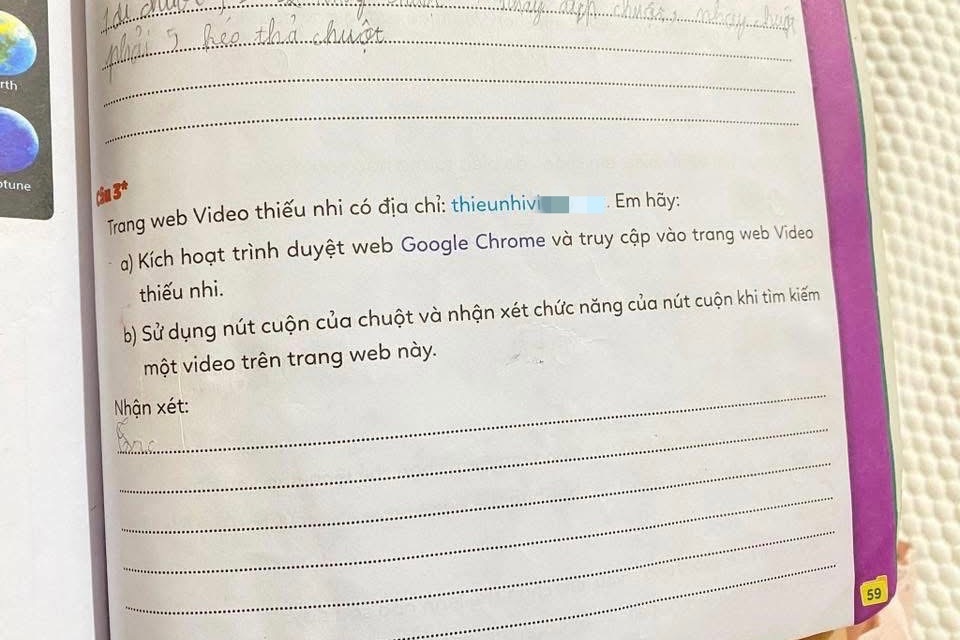 nháy chuột
phải, kéo thả chuột
rth
tune
Câu 3*
Trang web Video thiếu nhi có địa chỉ: thieunhivi . Em hãy:
a) Kích hoạt trình duyệt web Google Chrome và truy cập vào trang web Video
thiếu nhi.
b) Sử dụng nút cuộn của chuột và nhận xét chức năng của nút cuộn khi tìm kiếm
một video trên trang web này.
Nhận xét:
59